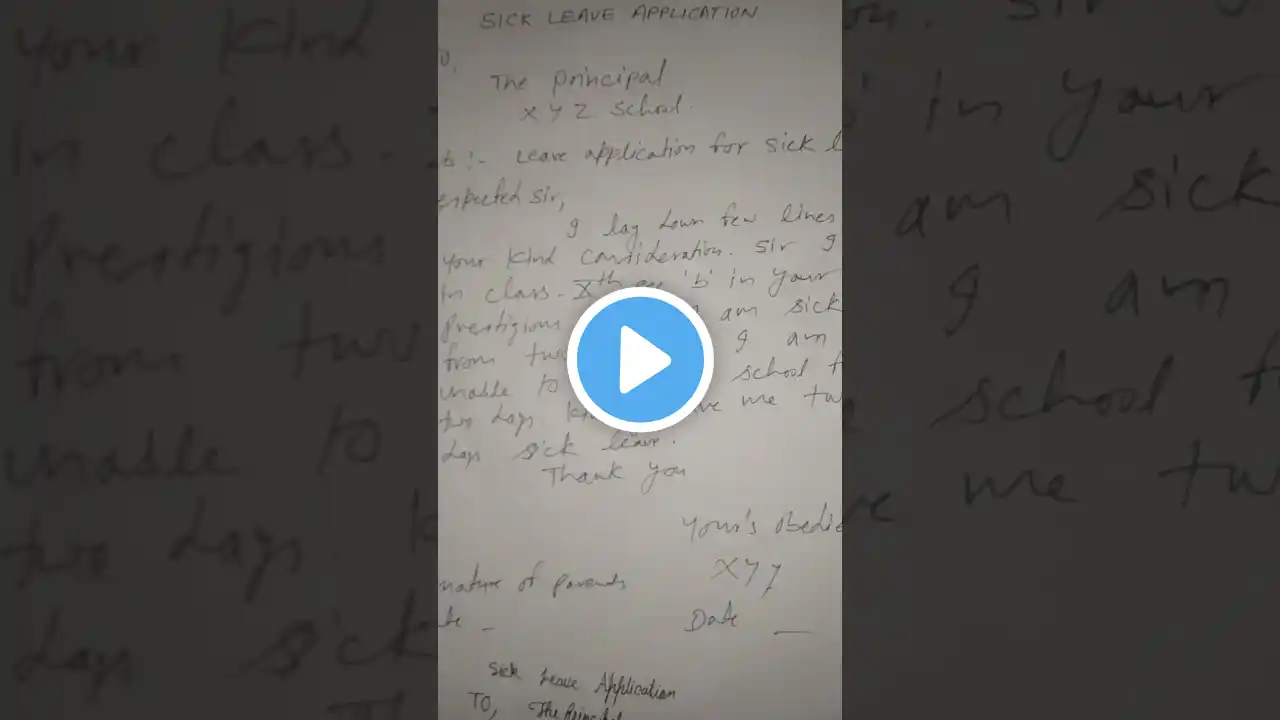 SICK LEAVE APPLICATION
O,
The principal
X Y Z School.
b :- Leave application for sick l
espected Sir,
I lay down few lines
your kind consideration. Sir I
in class - Xth 'b' in your
Prestigious am sick
from two I am
unable to school f
two days. me tw
days sick leave.
Thank you
Your's obedie
X Y Y
nature of parents
Date
Sick Leave Application
TO, The Principal